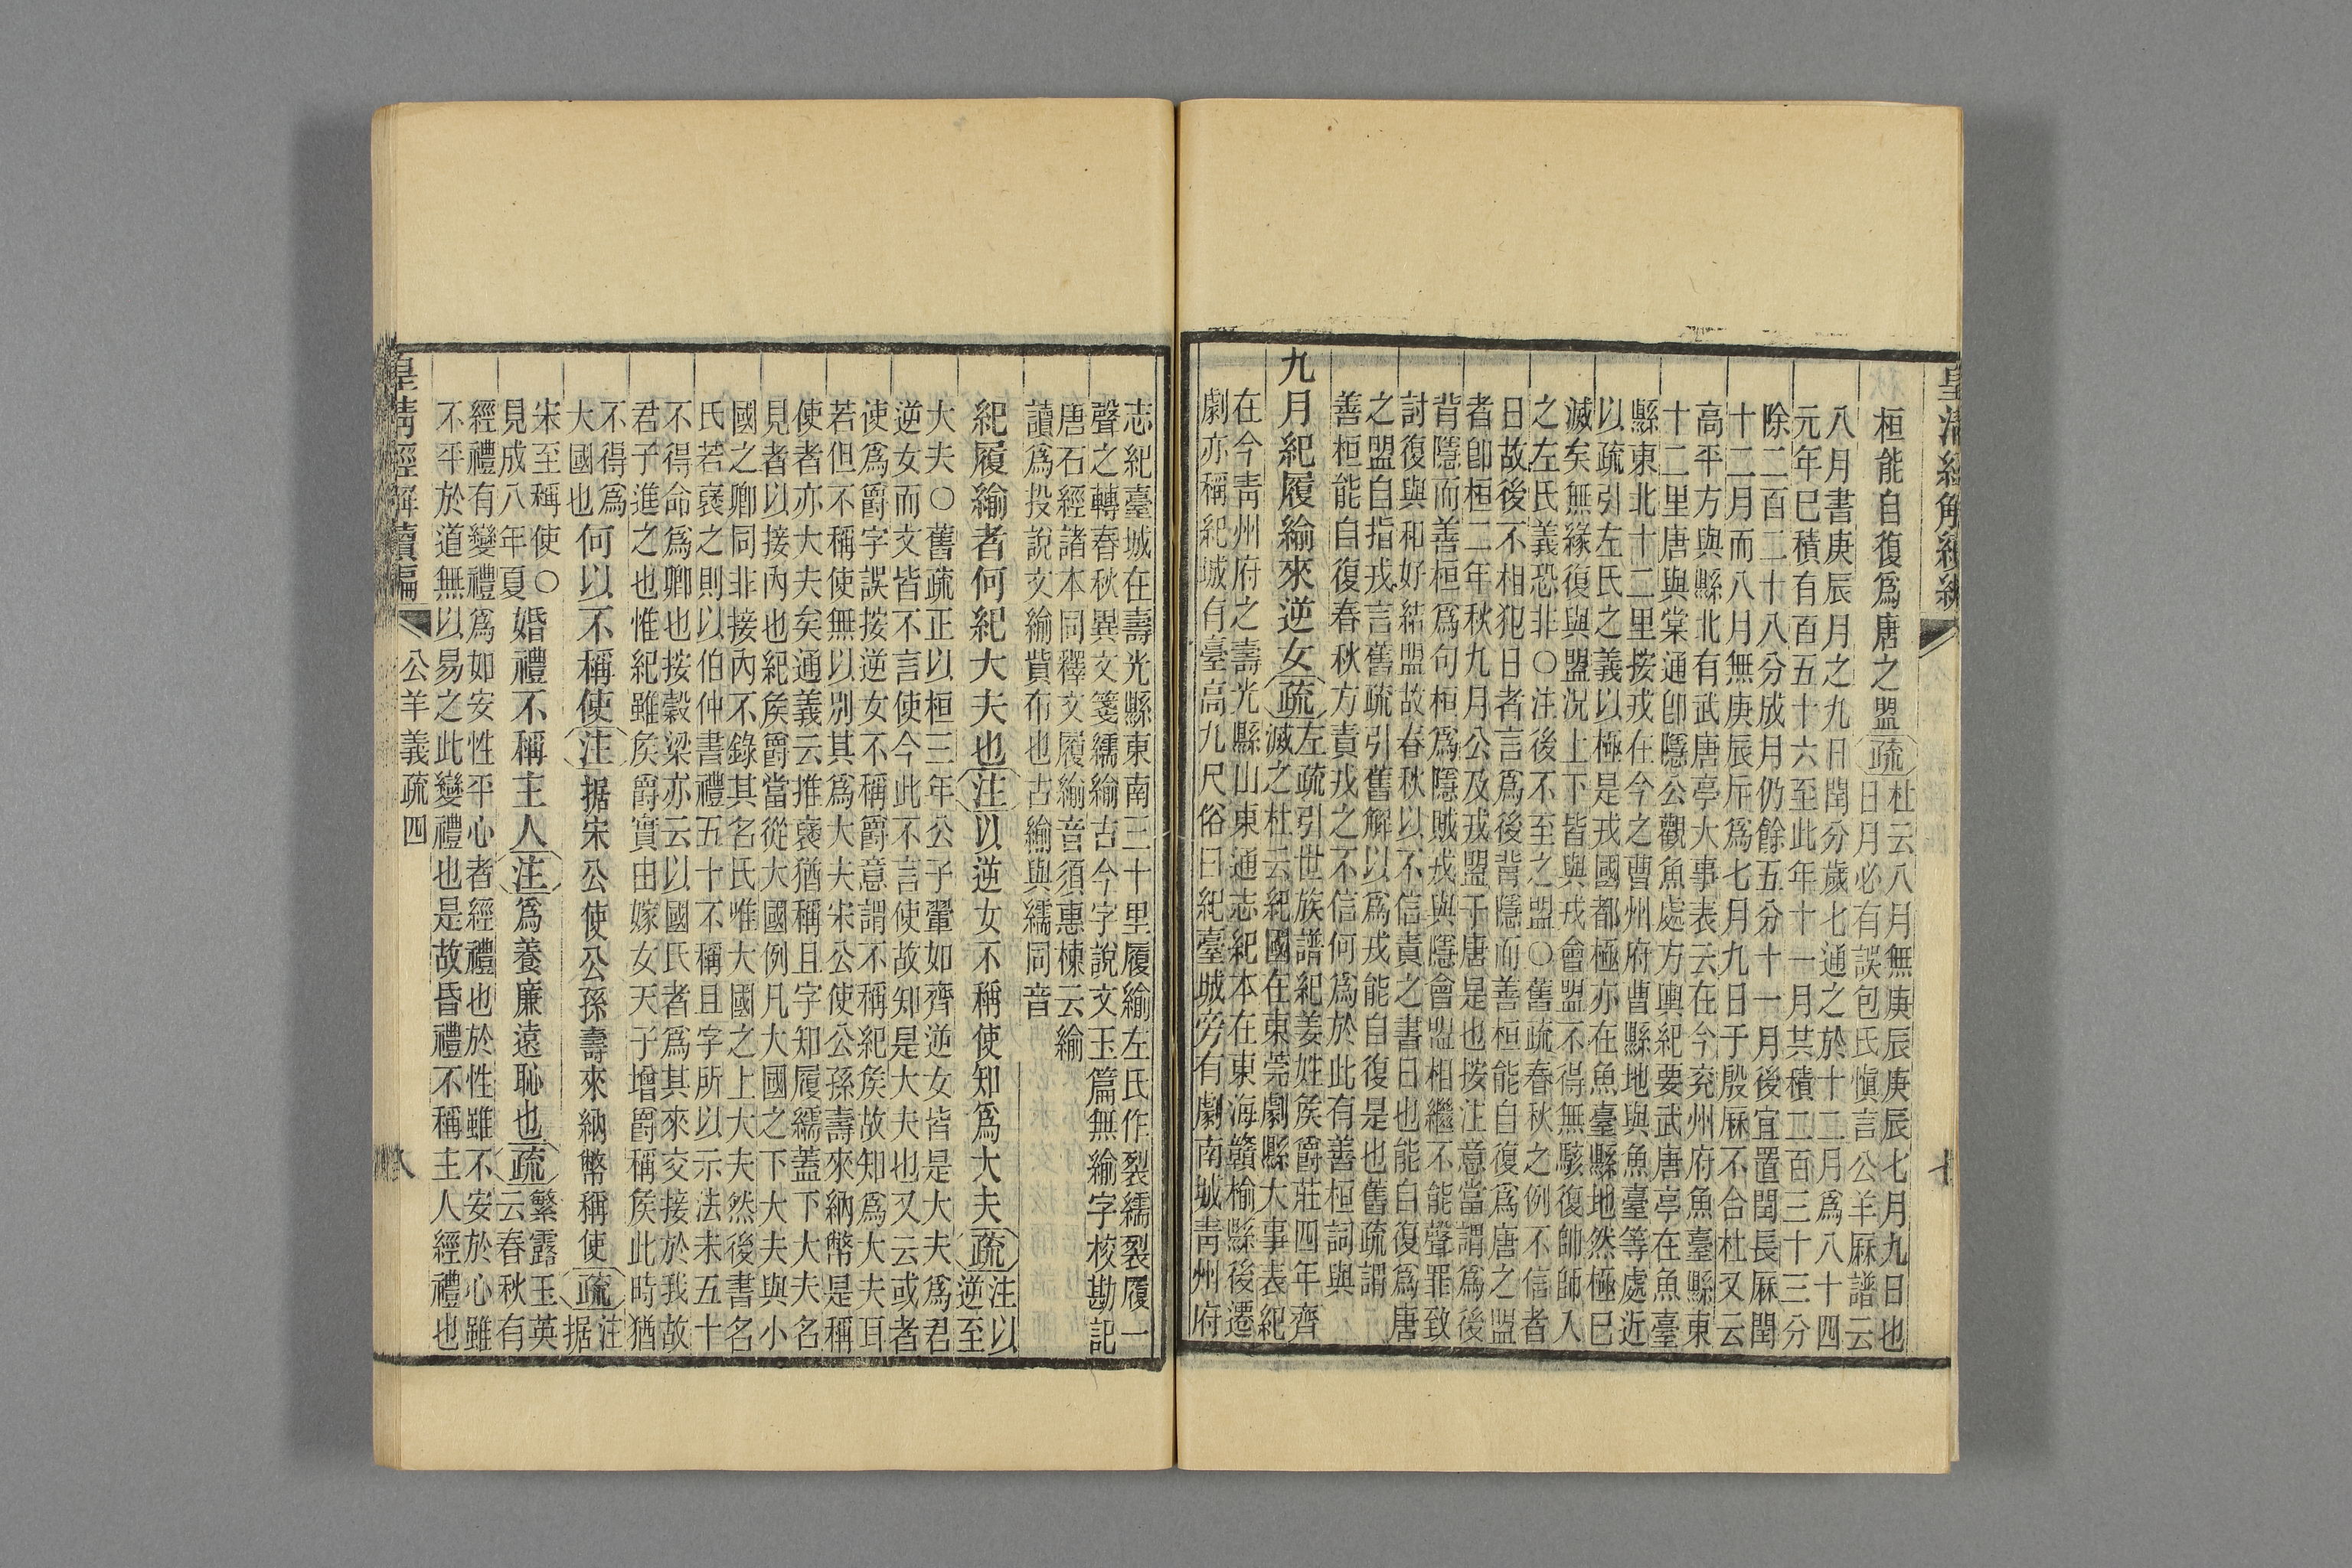 皇清經解續編
桓能自復爲唐之盟疏杜云八月無庚辰庚辰七月九日也
日月必有誤包氏愼言公羊厤譜云
八月書庚辰月之九日閏分歲七通之於十二月爲八十四
元年已積有百五十六至此年十一月其積二百三十三分
除二百二十八分成月仍餘五分十一月後宜置閏長厤閏
十二月而八月無庚辰斥爲七月九日于殷厤不合杜又云
高平方與縣北有武唐亭大事表云在今兗州府魚臺縣東
十二里唐與棠通卽隱公觀魚處方輿紀要武唐亭在魚臺
縣東北十二里按戎在今之曹州府曹縣地與魚臺等處近
以疏引左氏之義以極是戎國都極亦在魚臺縣地然極已
滅矣無緣復與盟況上下皆與戎會盟不得無駭復帥師入
之左氏義恐非○注後不至之盟○舊疏春秋之例不信者
日故後不相犯日者言爲後背隱而善桓能自復爲唐之盟
者卽桓二年秋九月公及戎盟于唐是也按注意當謂爲後
背隱而善桓爲句桓爲隱賊戎與隱會盟相繼不能聲罪致
討復與和好結盟故春秋以不信責之書日也能自復爲唐
之盟自指戎言舊疏引舊解以爲戎能自復是也舊疏謂
善桓能自復春秋方責戎之不信何爲於此有善桓詞與
九月紀履緰來逆女疏左疏引世族譜紀姜姓矦爵莊四年齊
滅之杜云紀國在東莞劇縣大事表紀
在今靑州府之壽光縣山東通志紀本在東海贛榆縣後遷
劇亦稱紀城有臺高九尺俗曰紀臺城旁有劇南城靑州府
志紀臺城在壽光縣東南三十里履緰左氏作裂繻裂履一
聲之轉春秋異文箋繻緰古今字說文玉篇無緰字校勘記
唐石經諸本同釋文履緰音須惠棟云緰
讀爲投說文緰貲布也古緰與繻同音
紀履緰者何紀大夫也注以逆女不稱使知爲大夫疏注以
逆至
大夫○舊疏正以桓三年公子翬如齊逆女皆是大夫爲君
逆女而文皆不言使今此不言使故知是大夫也又云或者
使爲爵字誤按逆女不稱爵意謂不稱紀矦故知爲大夫耳
若但不稱使無以別其爲大夫宋公使公孫壽來納幣是稱
使者亦大夫矣通義云推襃猶稱且字知履繻蓋下大夫名
見者以接內也紀矦爵當從大國例凡大國之下大夫與小
國之卿同非接內不錄其名氏唯大國之上大夫然後書名
氏若襃之則以伯仲書禮五十不稱且字所以示法未五十
不得命爲卿也按穀梁亦云以國氏者爲其來交接於我故
君子進之也惟紀雖矦爵實由嫁女天子增爵稱矦此時猶
不得爲
大國也何以不稱使注据宋公使公孫壽來納幣稱使疏注
据
宋至稱使○
見成八年夏婚禮不稱主人注爲養廉遠恥也疏繁露玉英
云春秋有
經禮有變禮爲如安性平心者經禮也於性雖不安於心雖
不平於道無以易之此變禮也是故昏禮不稱主人經禮也
皇清經解續編 公羊義疏四 八